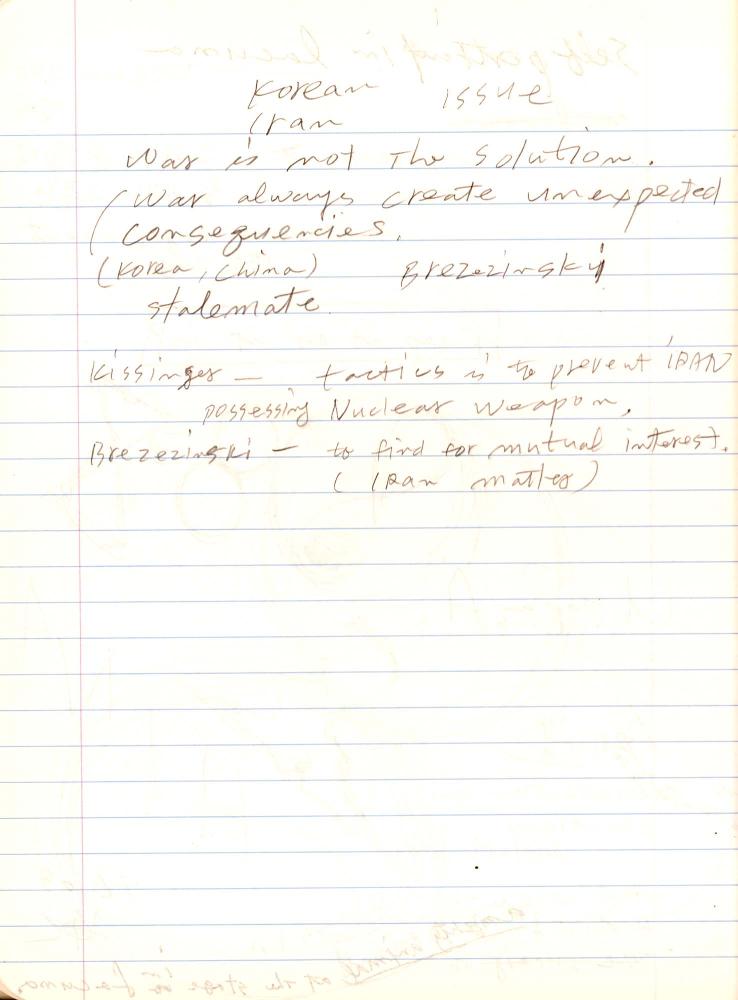 Korean issue
Iran
War is not The solution.
(War always create unexpected
consequencies.
(Korea, China) Brezezinski
stalemate.
Kissinger — tactics is to prevent IRAN
possessing Nuclear weapon.
Brezezinski — to find for mutual interest.
(IRan matter)